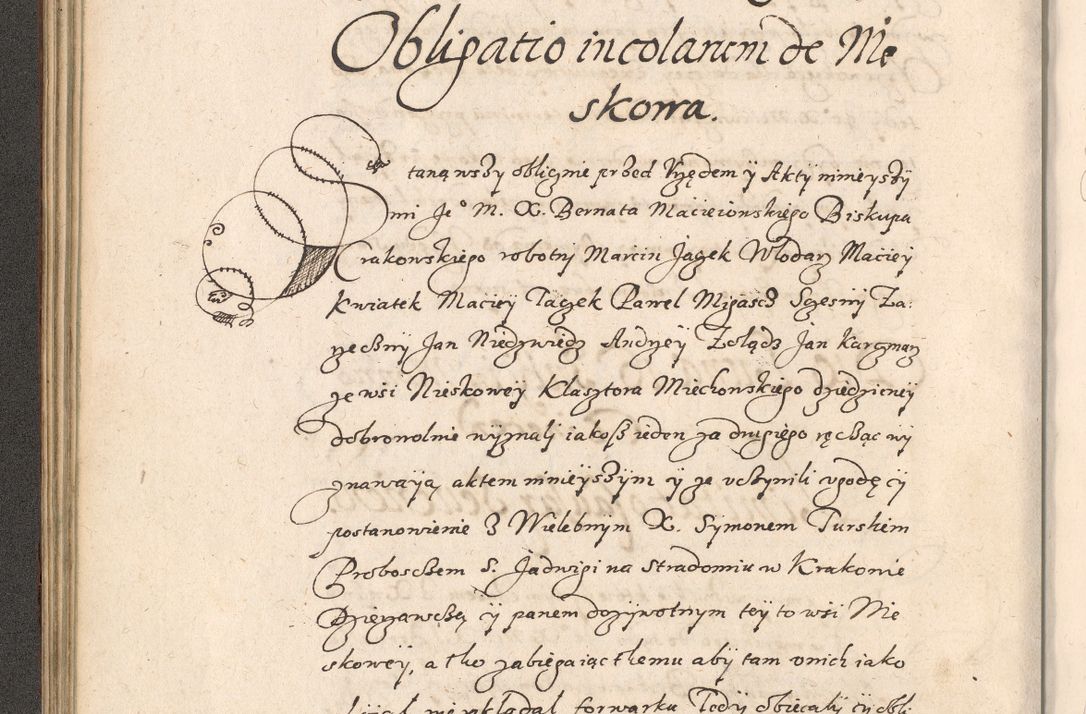 Obligatio incolarum de Nie
skowa.
Stanąwszy oblicznie przed Vrzędem y Akty ninieyszy
mi Je° M. X. Bernata Macieiowskiego Biskupa
Crakowskiego robotny Marcin Jązek Włodarz Maciey
Kwiatek Maciey Taczek Paweł Migacz Sczesny Za
rzeczny Jan Niedzwiedz Andrzey Żołądz Jan Karczmarz
ze wsi Nieskowey Klasztora Miechowskiego dziedziczney
dobrowolnie wyznali iakosz ieden za drugiego ręcząc wy
znawaią aktem ninieyszym yże vczynili vgodę y
postanowienie z Wielebnym X. Symonem Turskim
Proboszczem S. Jadwigi na Stradomiu w Krakowie
Dzierzawczą y panem dozywotnym tey to wsi Nie
skowey, a tho zabiegaiąc themu aby tam v nich iako
nie zakładał forwarku Tedy obiecaly y obli